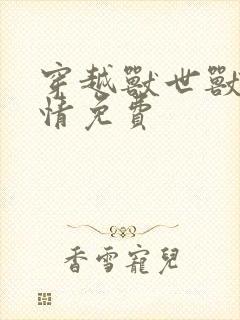 穿越獸世獸
情免費
香雪寵兒